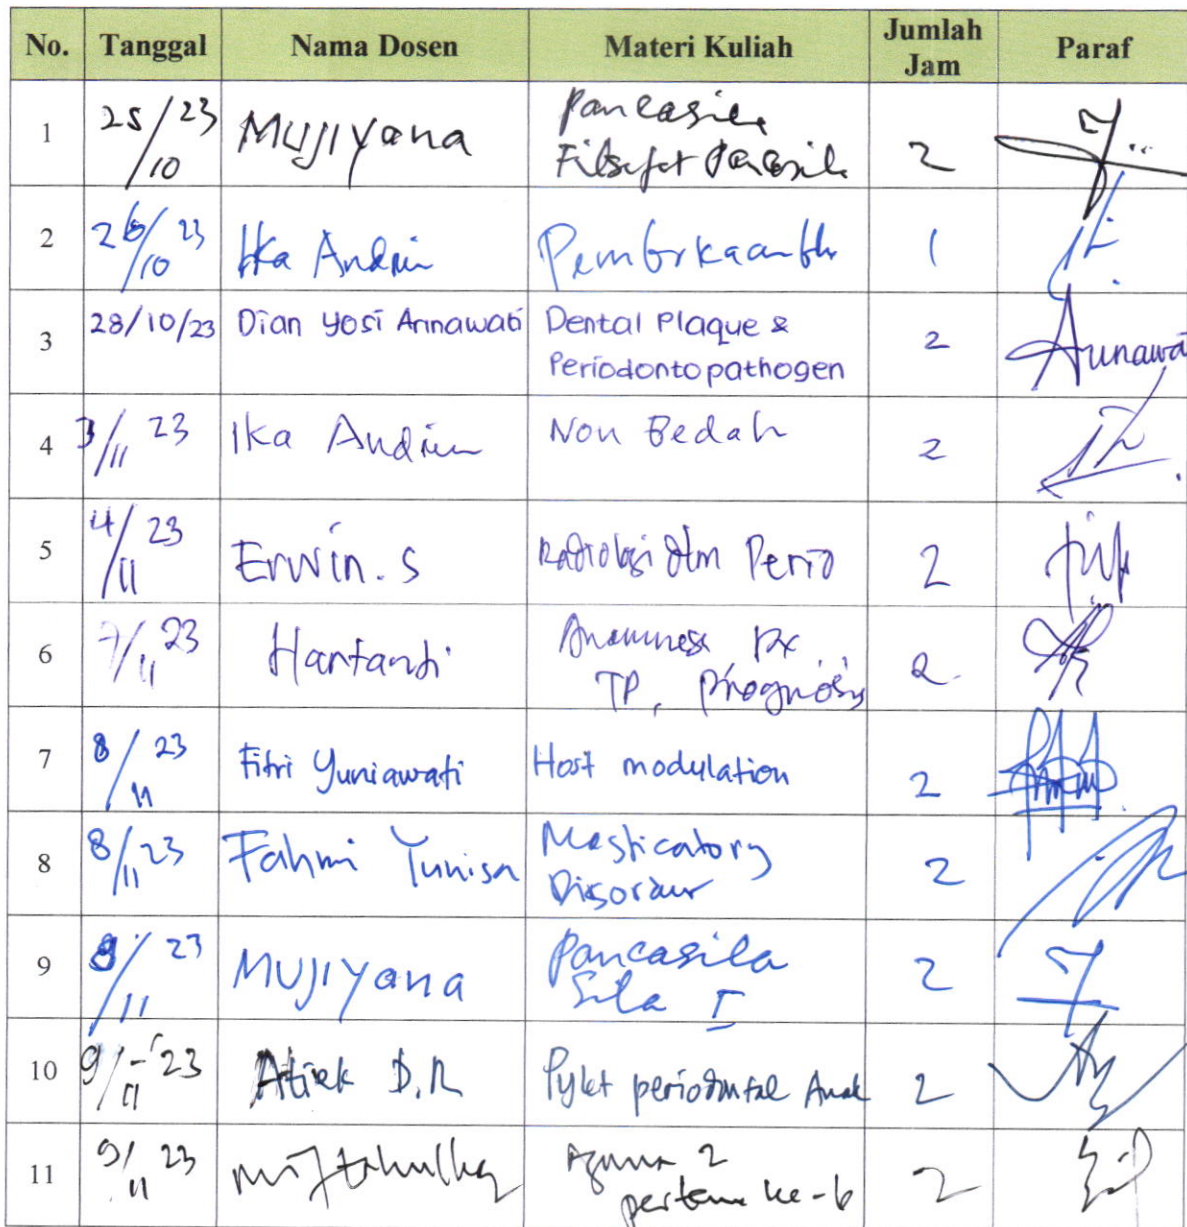 No. Tanggal Nama Dosen Materi Kuliah Jumlah Jam Paraf
1 25/10 23 MUJIYana Pancasila 2
Filsafat Pancasila
2 26/10 23 Ika Andrin 1
3 28/10/23 Dian Yosi Arinawati Dental Plaque & 2 Arinawa
Periodontopathogen
4 3/11 23 Ika Andrin Non Bedah 2
5 4/11 23 Erwin. S Radiologi dlm Perio 2
6 7/11 23 Hartanti Anamnesa Px 2.
TP, Prognosis
7 8/11 23 Fitri Yuniawati Host modulation 2
8 8/11 23 Fahmi Yunisa Masticatory 2
9 8/11 23 MUJIYana Pancasila 2
Sila I
10 9/11 '23 Atiek D.R Pykt periodontal Anak 2
11 9/11 23 Miftahulhaq Agama 2 2
pertemu ke-6